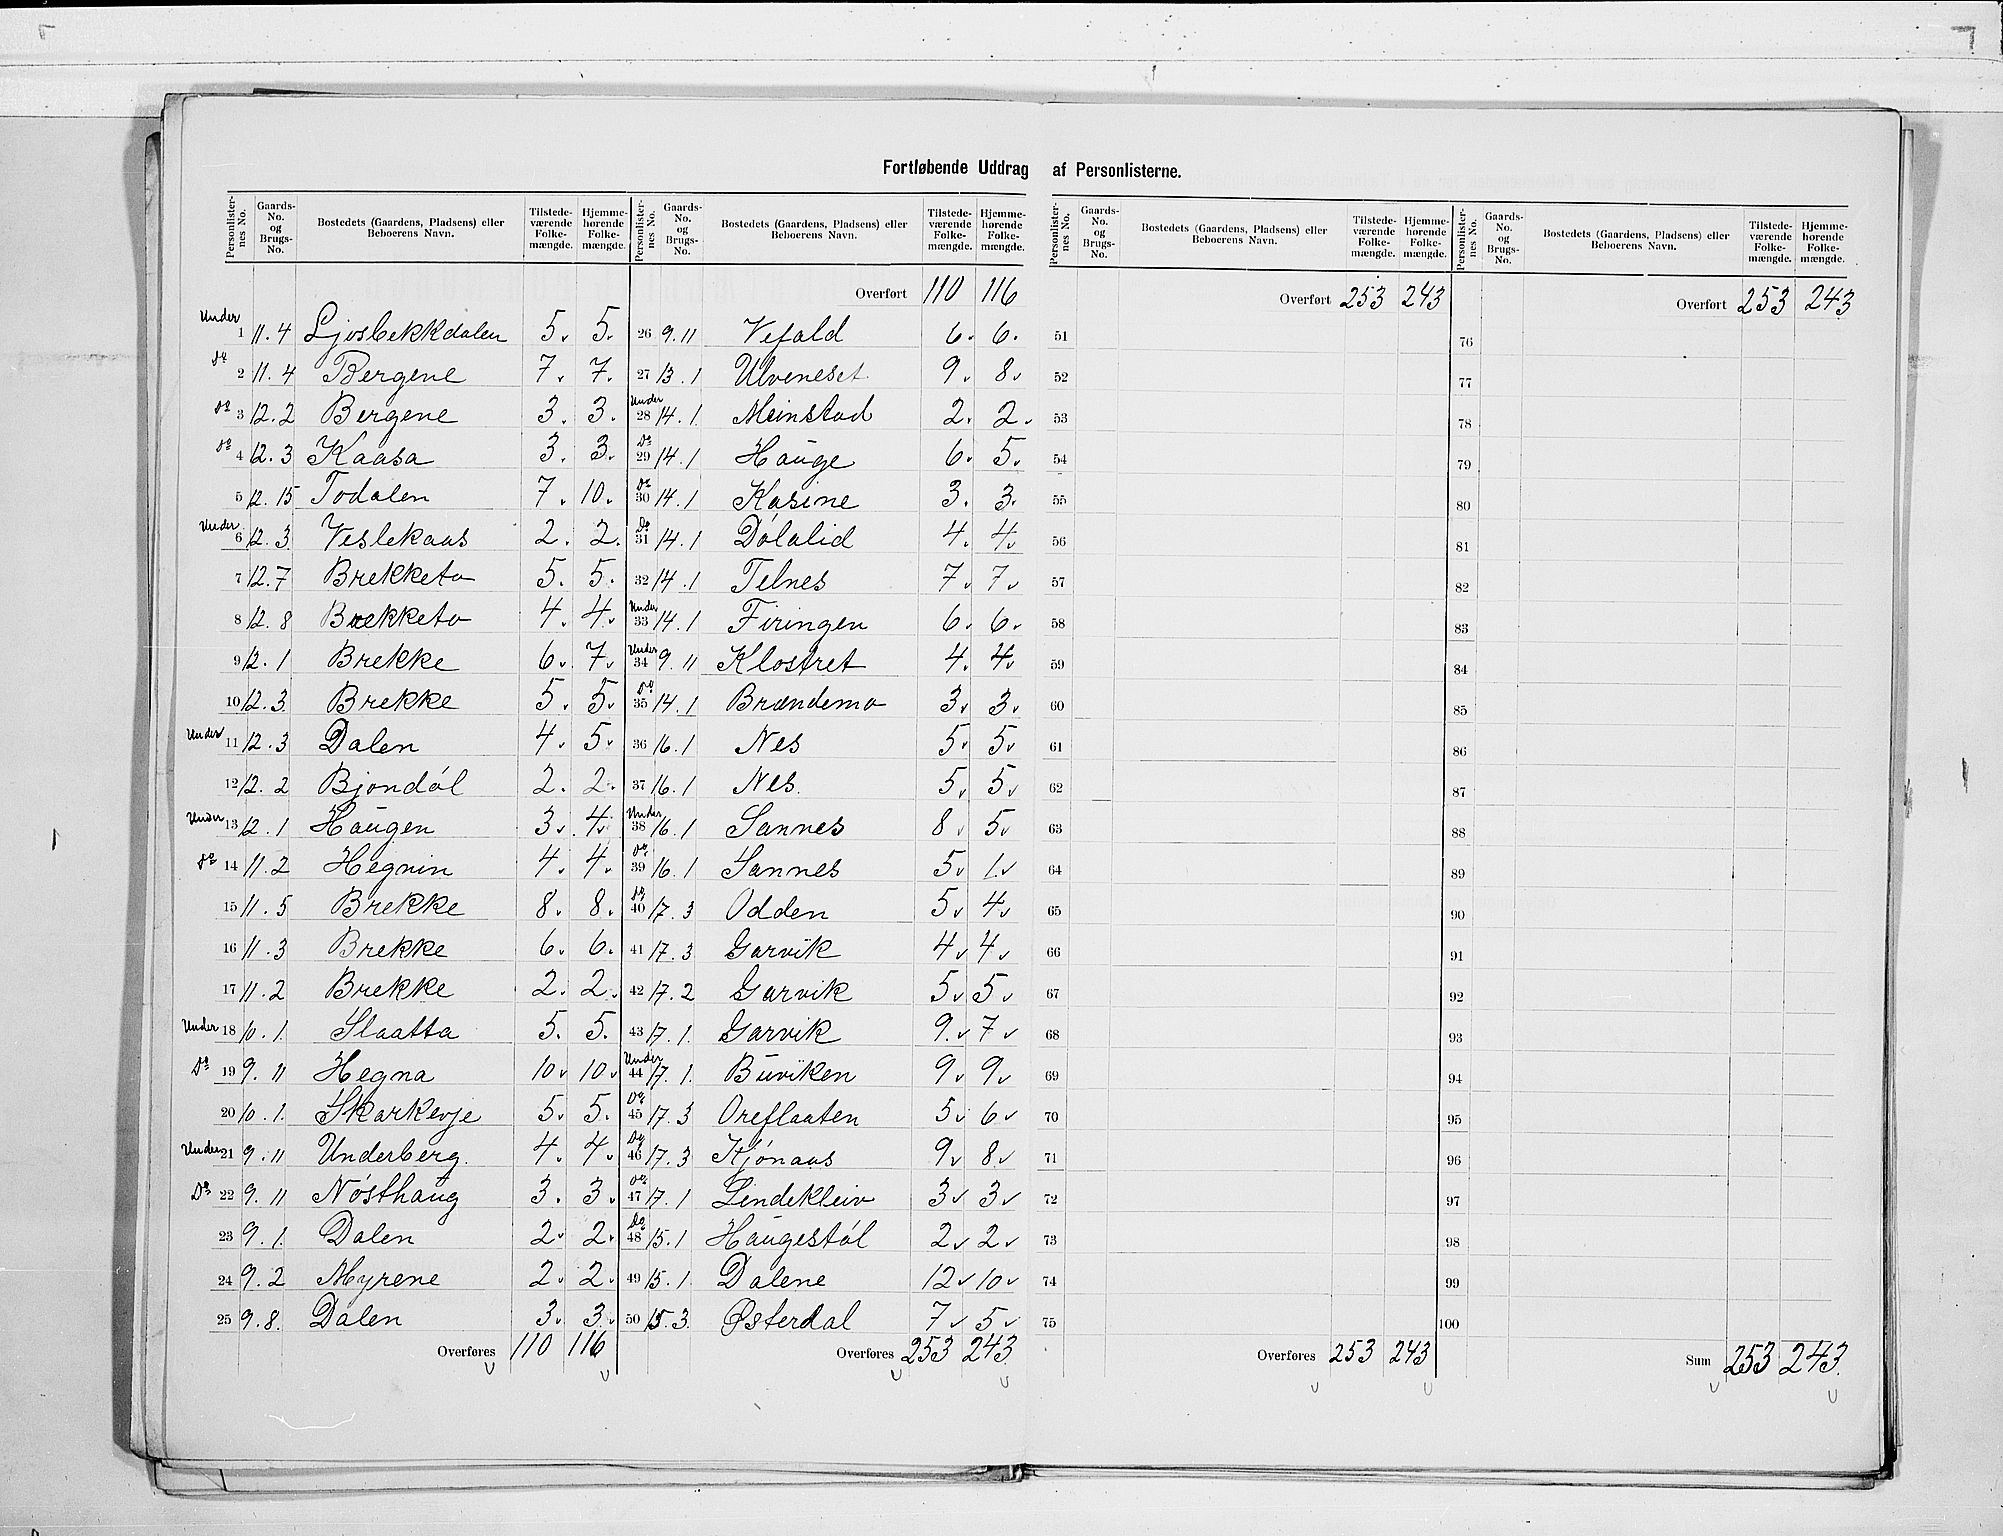 Fortløbende Uddrag af Personlisterne.
Personlister-nes No. Gaards-No. og Brugs-No. Bostedets (Gaardens, Pladsens) eller Beboerens Navn. Tilstede-værende Folke-mængde. Hjemme-hørende Folke-mængde.
Under 1 11.4 Ljosbekkdalen 5. 5.
Do 2 11.4 Bergene 7. 7.
Do 3 12.2 Bergene 3. 3.
Do 4 12.3 Kaasa 3. 3.
5 12.15 Todalen 7. 10.
Under 6 12.3 Veslekaas 2. 2.
7 12.7 Brekketo 5. 5.
8 12.8 Brekketo 4. 4.
9 12.1 Brekke 6. 7.
10 12.3 Brekke 5. 5.
Under 11 12.3 Dalen 4. 5.
12 12.2 Bjøndøl 2. 2.
Under 13 12.1 Haugen 3. 4.
Do 14 11.2 Hegnin 4. 4.
15 11.5 Brekke 8. 8.
16 11.3 Brekke 6. 6.
17 11.2 Brekke 2. 2.
Under 18 10.1. Slaatta 5. 5.
Do 19 9.11 Hegna 10. 10.
20 10.1. Skarkevje 5. 5.
Under 21 9.11 Underberg. 4. 4.
Do 22 9.11 Nøsthaug 3. 3.
23 9.1. Dalen 2. 2.
24 9.2 Myrene 2. 2.
25 9.8. Dalen 3. 3.
Overføres 110 116
Personlister-nes No. Gaards-No. og Brugs-No. Bostedets (Gaardens, Pladsens) eller Beboerens Navn. Tilstede-værende Folke-mængde. Hjemme-hørende Folke-mængde.
Overført 110 116
26 9.11 Vefald 6. 6.
27 13.1 Ulveneset 9. 8.
Under 28 14.1 Meinstad 2. 2.
Do 29 14.1 Hauge 6. 5.
Do 30 14.1 Kasine 3. 3.
Do 31 14.1 Dølalid 4. 4.
32 14.1 Telnes 7. 7.
Under 33 14.1 Firingen 6. 6.
Under 34 9.11 Klostret 4. 4.
Do 35 14.1 Brændemo 3. 3.
36 16.1 Nes 5. 5.
37 16.1 Nes. 5. 5.
Under 38 16.1 Sannes 8. 5.
Do 39 16.1 Sannes 5. 1.
Do 40 17.3 Odden 5. 4.
41 17.3 Garvik 4. 4.
42 17.2 Garvik 5. 5.
43 17.1. Garvik 9. 7.
Under 44 17.1. Buviken 9. 9.
Do 45 17.3 Oreflaaten 5. 6.
Do 46 17.3 Kjønaas 9. 8.
Do 47 17.1 Lindekleiv 3. 3.
Do 48 15.1 Haugestøl 2. 2.
49 15.1. Dalene 12. 10.
50 15.3. Østerdal 7. 5.
Overføres 253 243
Personlister-nes No. Gaards-No. og Brugs-No. Bostedets (Gaardens, Pladsens) eller Beboerens Navn. Tilstede-værende Folke-mængde. Hjemme-hørende Folke-mængde.
Overført 253 243
51
52
53
54
55
56
57
58
59
60
61
62
63
64
65
66
67
68
69
70
71
72
73
74
75
Overføres 253 243
Personlister-nes No. Gaards-No. og Brugs-No. Bostedets (Gaardens, Pladsens) eller Beboerens Navn. Tilstede-værende Folke-mængde. Hjemme-hørende Folke-mængde.
Overført 253 243
76
77
78
79
80
81
82
83
84
85
86
87
88
89
90
91
92
93
94
95
96
97
98
99
100
Sum 253 243.